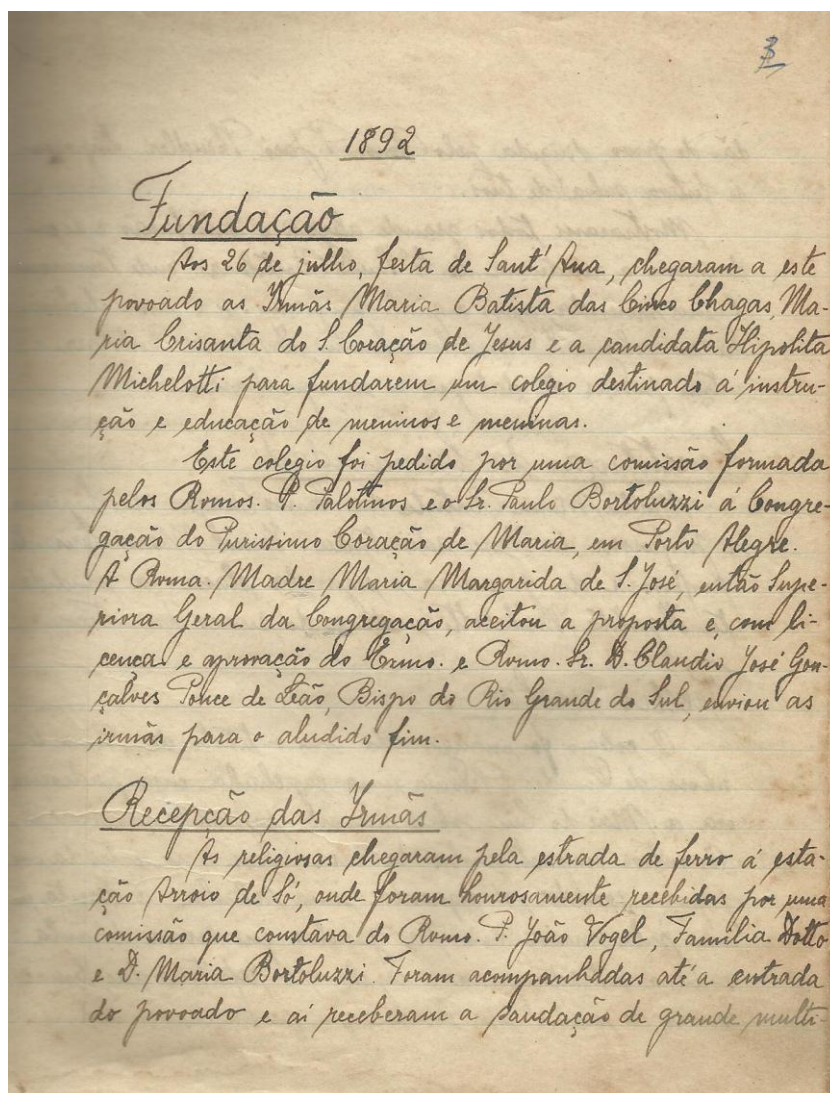 3
1892
Fundação
Aos 26 de julho, festa de Sant'Ana, chegaram a este
povoado as Irmãs Maria Batista das Cinco Chagas, Ma-
ria Crisanta do S. Coração de Jesus e a candidata Hipolita
Michelotti para fundarem um colegio destinado á instru-
ção e educação de meninos e meninas.
Este colegio foi pedido por uma comissão formada
pelos Rvmos. P. Palotinos e o Sr. Paulo Bortoluzzi á Congre-
gação do Purissimo Coração de Maria, em Porto Alegre.
A Rvma. Madre Maria Margarida de S. José, então Supe-
riora Geral da Congregação, aceitou a proposta e, com li-
cença e aprovação do Exmo. e Rvmo. Sr. D. Claudio José Gon-
çalves Ponce de Leão, Bispo do Rio Grande do Sul, enviou as
irmãs para o aludido fim.
Recepção das Irmãs
As religiosas chegaram pela estrada de ferro á esta-
ção Arroio do Só, onde foram honrosamente recebidas por uma
comissão que constava do Rvmo. P. João Vogel, Familia Dotto
e D. Maria Bortoluzzi. Foram acompanhadas até a entrada
do povoado e aí receberam a saudação de grande multi-